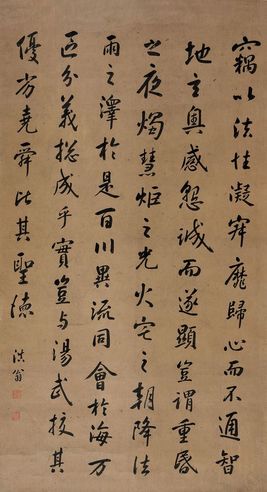 竊以法性凝寂靡歸心而不通智
地玄奧感懇誠而遂顯豈謂重昏
之夜燭慧炬之光火宅之朝降法
雨之澤於是百川異流同會於海万
區分義總成乎實豈与湯武挍其
優劣堯舜比其聖德
洪翁